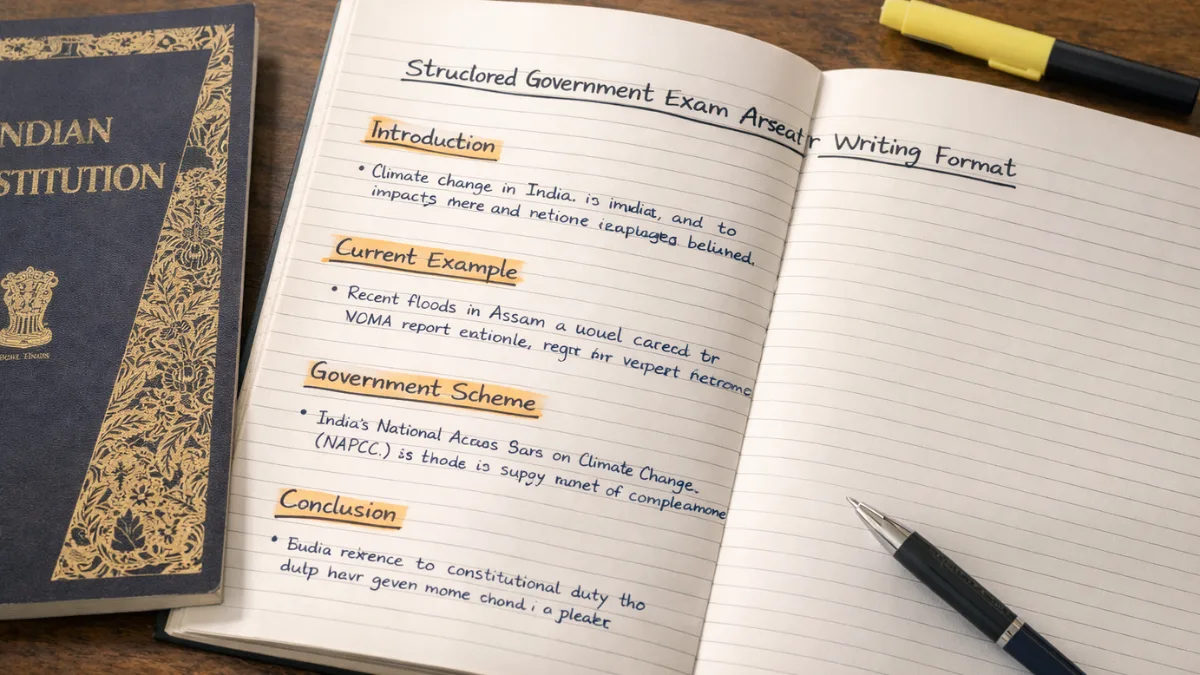 INDIAN
STITUTION
Struclored Government Exam Arseatr Writing Format
Introduction
• Climate change in India. is imudiat, and to
impacts mere and netione izaplages beliuned.
Current Example
• Recent floods in Assam a uouel careed tr
NOMA report entionle, regit for verpert hetrome
Government Scheme
• India's National Acraos Sars on Climate Change.
(NAPCC.) is thode is supgy monet of compleamone
Conclusion
• Eudia rexrence to constitutional duty tho
dutp havr geven mome chond i a pleakr